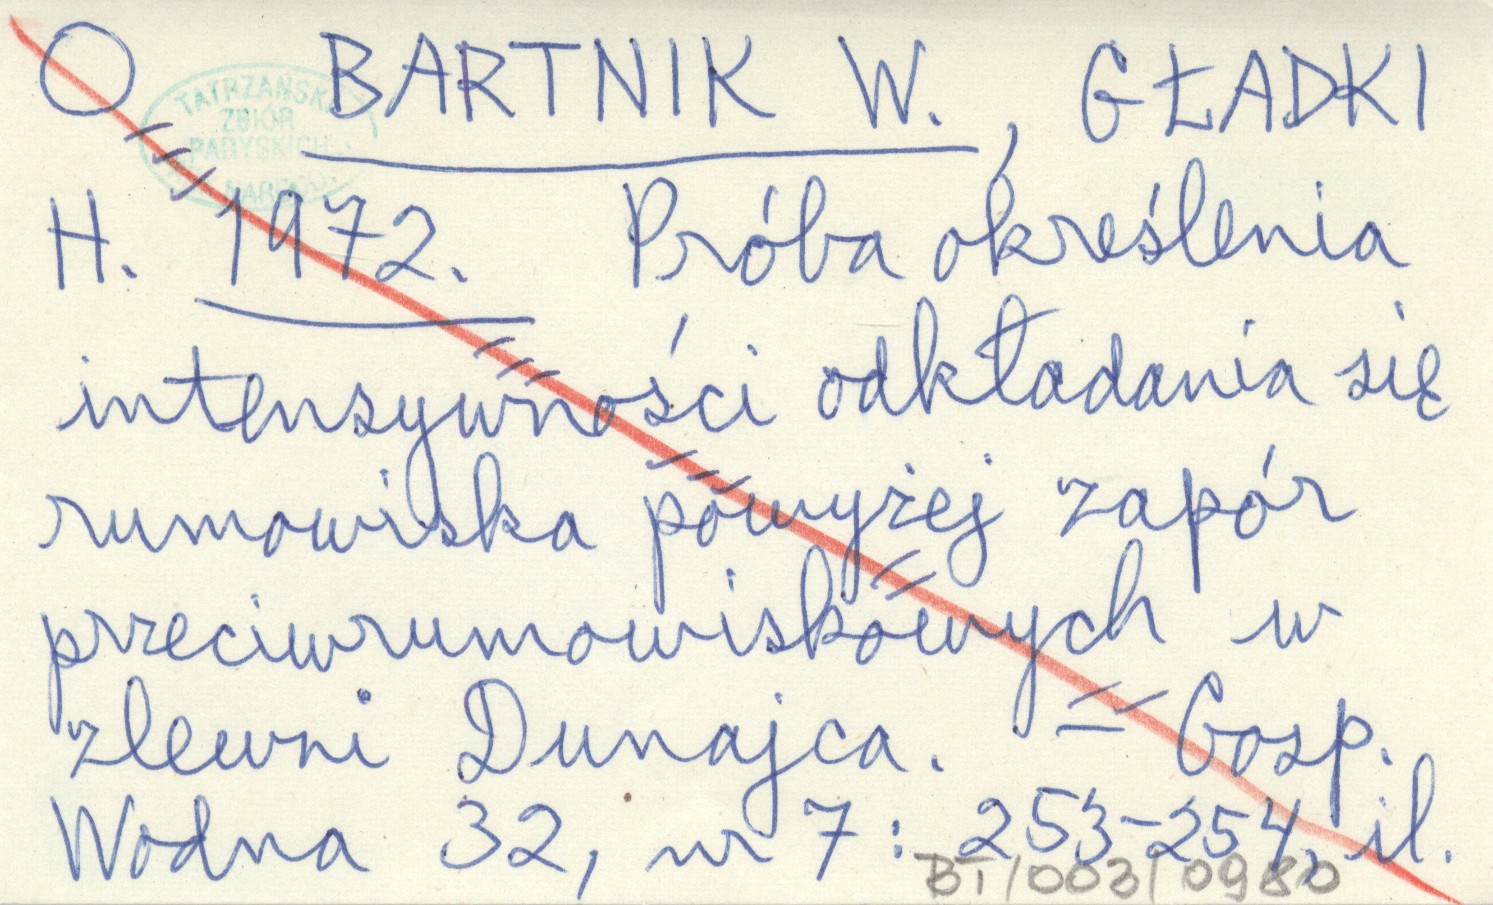 O BARTNIK W., GŁADKI
TATRZAŃSKI
ZBIÓR
PARYSKICH
H. 1972. Próba określenia
intensywności odkładania się
rumowiska powyżej zapór
przeciwrumowiskowych w
zlewni Dunajca. = Gosp.
Wodna 32, nr 7: 253-254, il.
BT/003/0980